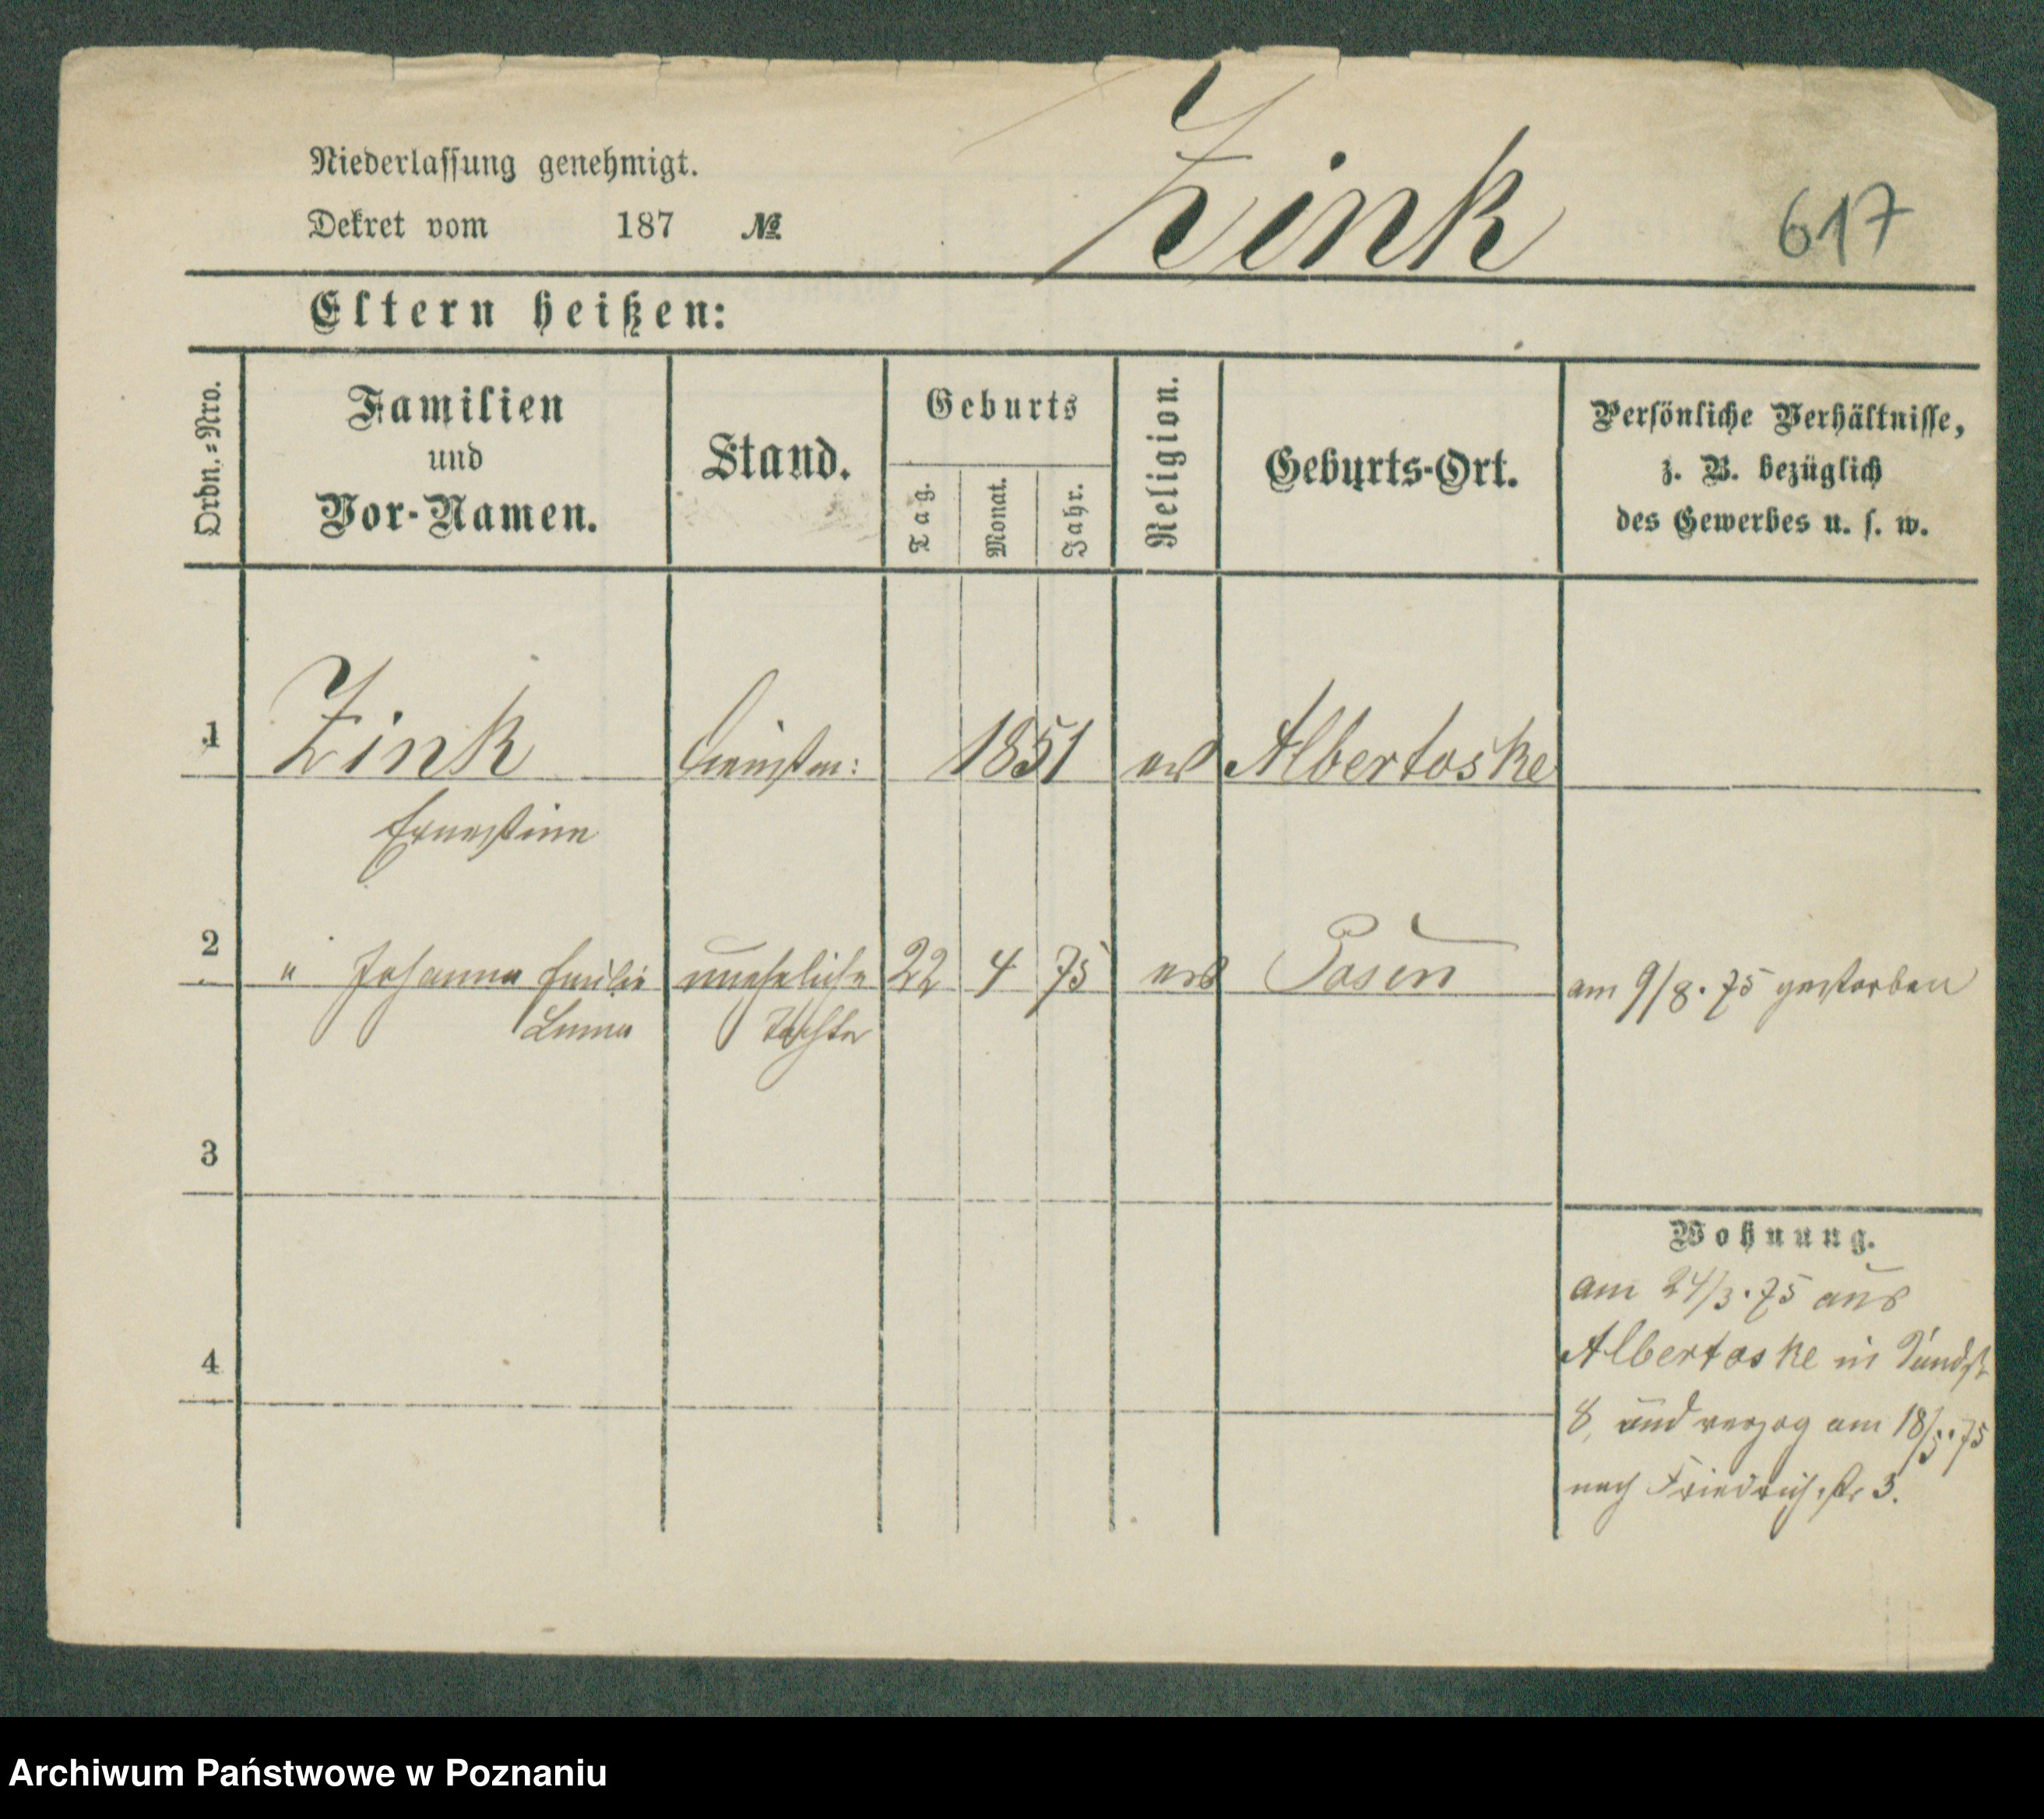 Niederlassung genehmigt.
Dekret vom 187 №
Zink
617
Eltern heißen:
Ordn.=Nro.
Familien
und
Vor-Namen.
Stand.
Geburts
Tag.
Monat.
Jahr.
Religion.
Geburts-Ort.
Persönliche Verhältnisse,
z. B. bezüglich
des Gewerbes u. s. w.
1 Zink 1851 Albertoske
Ernestine
2 " Johanna Emilie uneheliche 22 4 75 Posen am 9/8. 75 gestorben
Tochter
3
4
Wohnung.
am 24/3. 75 aus
Albertoske in
8, und verzog am 18/5. 75
nach Friedrichstr 3.
Archiwum Państwowe w Poznaniu